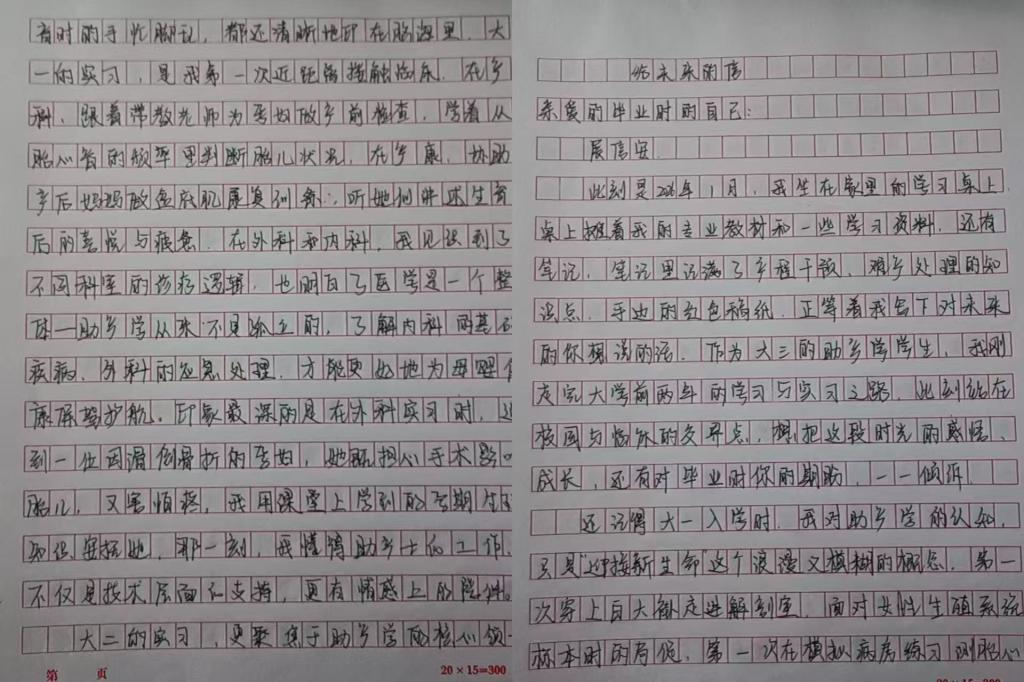 给未来的信
亲爱的毕业时的自己：
展信安
此刻是2026年1月，我坐在家里的学习桌上，
桌上摆着我的专业教材和一些学习资料，还有
笔记，笔记里记满了产程干预、难产处理的知
识点，手边的红色稿纸，正等着我写下对未来
的你想说的话。作为大三的助产学学生，我刚
走完大学前两年的学习与实习之路，此刻站在
校园与临床的交界点，想把这段时光的感悟、
成长，还有对毕业时你的期盼，一一倾诉。
还记得大一入学时，我对助产学的认知，
只是"迎接新生命"这个浪漫又模糊的概念。第一
次穿上白大褂走进解剖室，面对女性生殖系统
标本时的局促，第一次在模拟病房练习测胎心
音时的手忙脚乱，都还清晰地印在脑海里。大
一的实习，是我第一次近距离接触临床。在产
科，跟着带教老师为孕妇做产前检查，学着从
胎心音的频率里判断胎儿状况，在产康，协助
产后妈妈做盆底肌康复训练，听她们讲述生育
后的喜悦与疲惫。在外科和内科，我见识到了
不同科室的诊疗逻辑，也明白了医学是一个整
体—助产学从来不是孤立的，了解内科的基础
疾病、外科的应急处理，才能更好地为母婴健
康保驾护航。印象最深的是在外科实习时，遇
到一位因滑倒骨折的孕妇，她既担心手术影响
胎儿，又害怕疼，我用课堂上学到的孕期生理
知识安抚她，那一刻，我懂得助产士的工作，
不仅是技术层面的支持，更有情感上的陪伴。
大二的实习，更聚焦于助产学的核心领
第 页
20×15=300